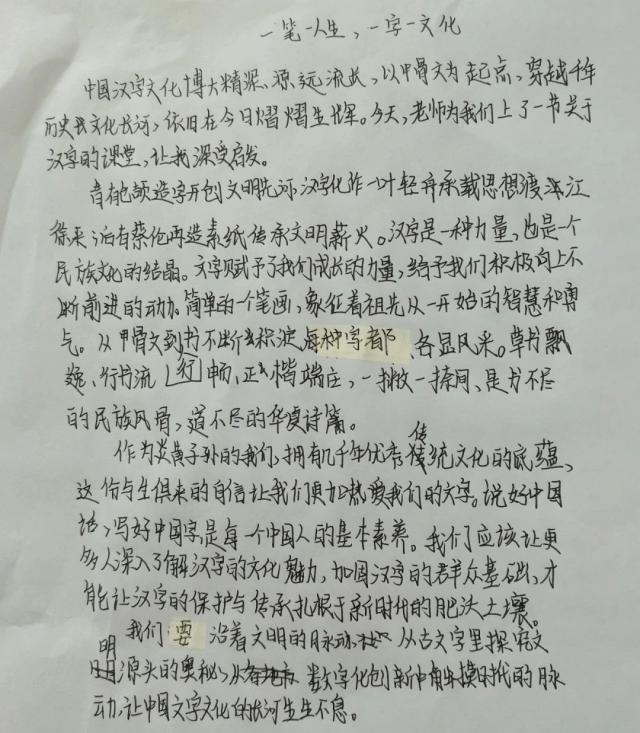 一笔一人生，一字一文化
中国汉字文化博大精深、源远流长，以甲骨文为起点，穿越千年
历史长文化长河，依旧在今日熠熠生辉。今天，老师为我们上了一节关于
汉字的课堂，让我深受启发。
昔有仓颉造字开创文明先河，汉字化作一叶轻舟承载思想渡江
徐来；后有蔡伦再造素纸传承文明薪火。汉字是一种力量，也是一个
民族文化的结晶。文字赋予了我们成长的力量，给予我们积极向上不
断前进的动力。简单的一个笔画，象征着祖先从一开始的智慧和勇
气。从甲骨文到书不断积淀，每种字都、各显风采。草书飘
逸、行书流行畅、正楷端庄，一撇一捺间、是书不尽
的民族风骨，道不尽的华夏诗篇。
作为炎黄子孙的我们，拥有几千年优秀传统文化的底蕴，
这份与生俱来的自信让我们更加热爱我们的文字。说好中国
话，写好中国字是每一个中国人的基本素养。我们应该让更
多人深入了解汉字的文化魅力，加固汉字的群众基础，才
能让汉字的保护与传承扎根于新时代的肥沃土壤。
我们要沿着文明的脉动从古文字里探究文
明源头的奥秘、从数字化创新中触摸时代的脉
动，让中国文字文化的长河生生不息。